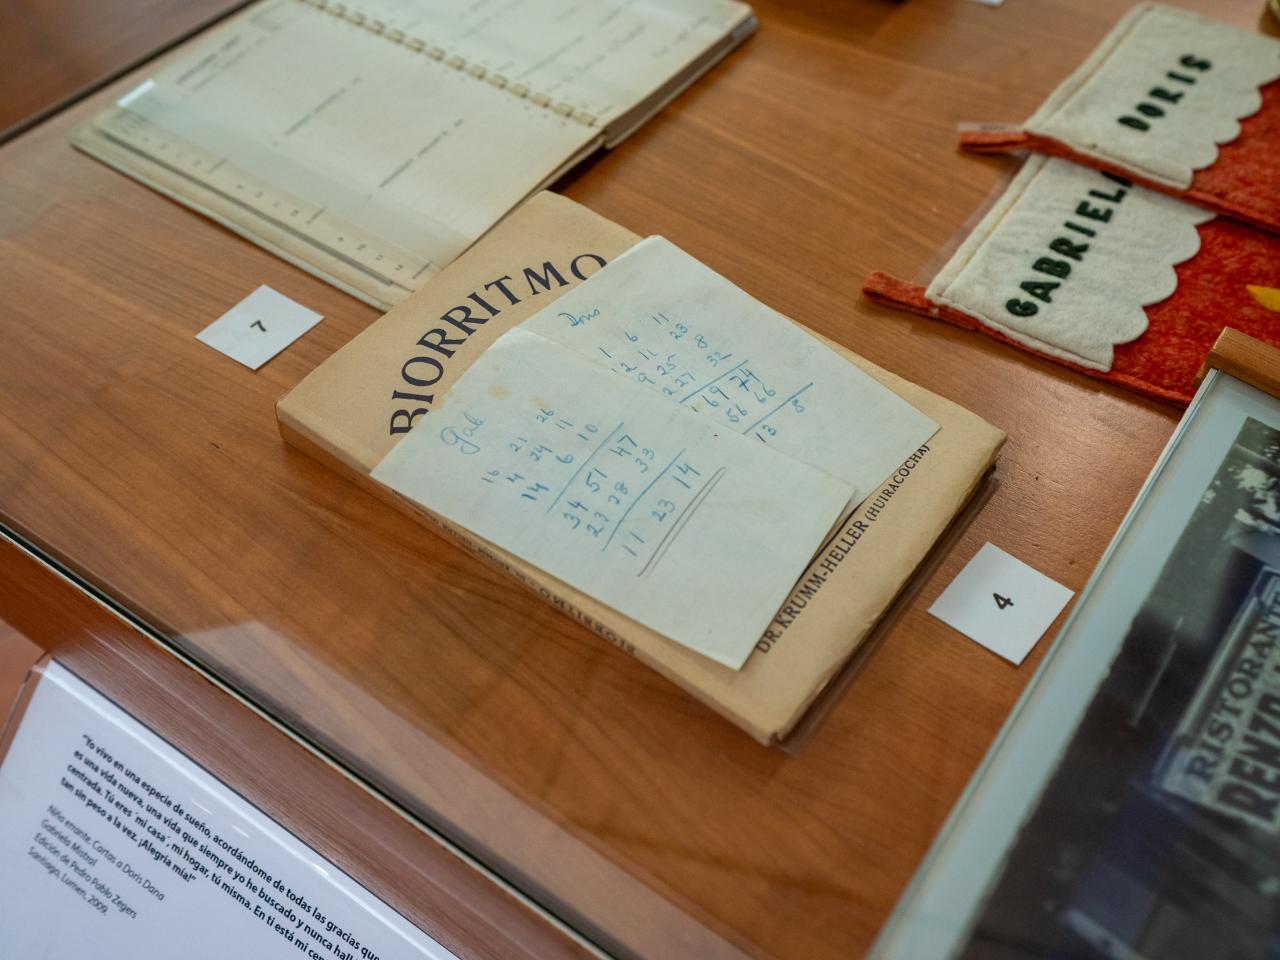 DORIS
GABRIEL
7
BIORRITMO
Doris
1 6 11
2 11 23
9 25 8
2 27 32
69 74
56 66
13 8
Gab
16 21 26
4 24 11
14 6 10
34 51 47
23 28 33
11 23 14
DR. KRUMM-HELLER (HUIRACOCHA)
BIORRITMO
4
RISTORANT
RENZ
"Yo vivo en una especie de sueño, acordándome de todas las gracias que
es una vida nueva, una vida que siempre yo he buscado y nunca hall
centrada. Tú eres ´mi casa´, mi hogar, tú misma. En ti está mi cen
tan sin peso a la vez. ¡Alegría mía!"
Niña errante. Cartas a Doris Dana
Gabriela Mistral
Edición de Pedro Pablo Zegers
Santiago, Lumen, 2009.